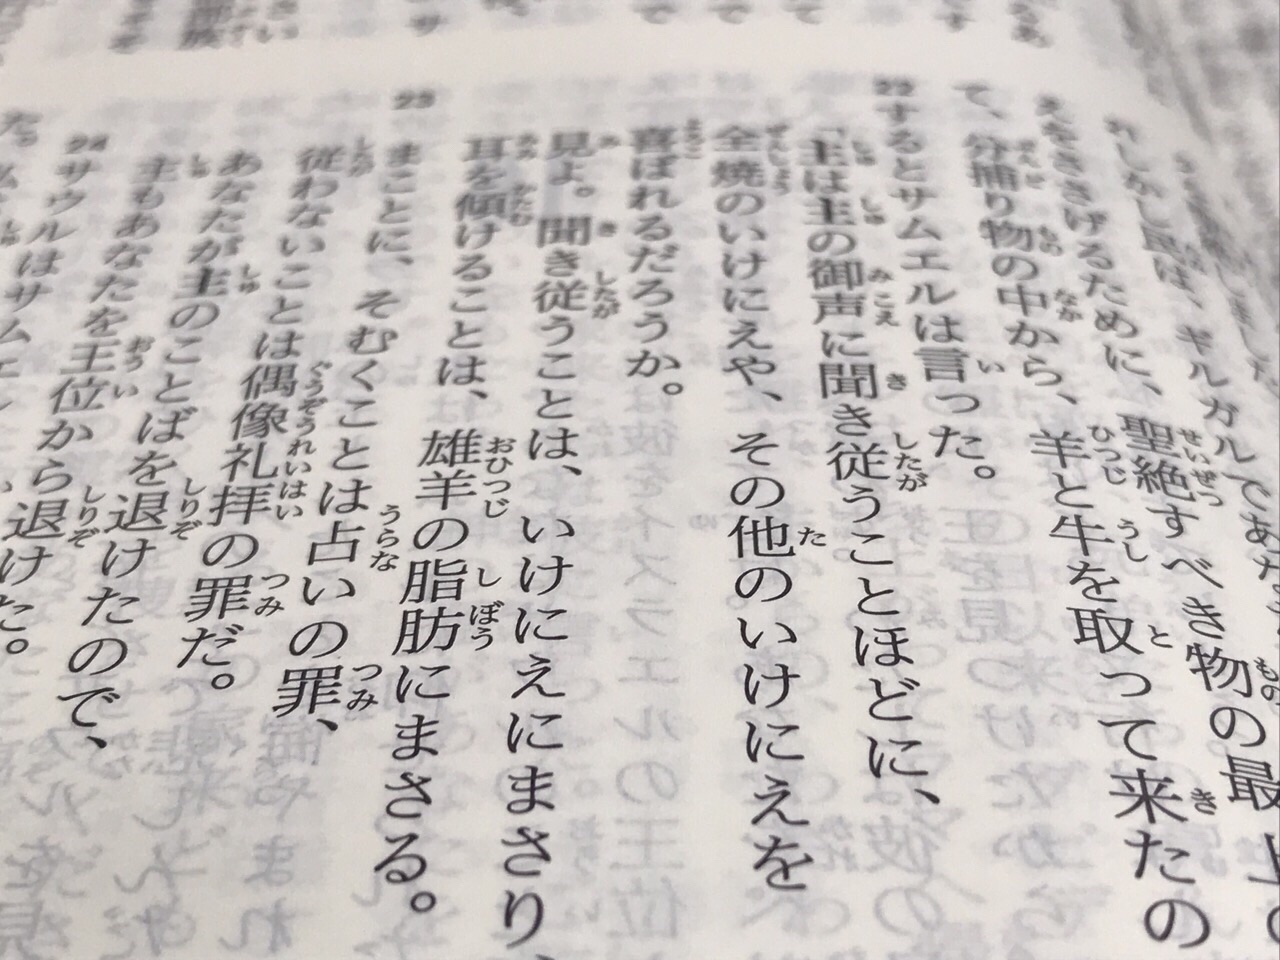 しかし民は、ギルガルであなた
をささげるために、聖絶すべき物の最上の
て、分捕り物の中から、羊と牛を取って来たの
22 するとサムエルは言った。
「主は主の御声に聞き従うことほどに、
全焼のいけにえや、その他のいけにえを
喜ばれるだろうか。
見よ。聞き従うことは、いけにえにまさり、
耳を傾けることは、雄羊の脂肪にまさる。
23 まことに、そむくことは占いの罪、
従わないことは偶像礼拝の罪だ。
あなたが主のことばを退けたので、
主もあなたを王位から退けた。
24 サウルはサムエル